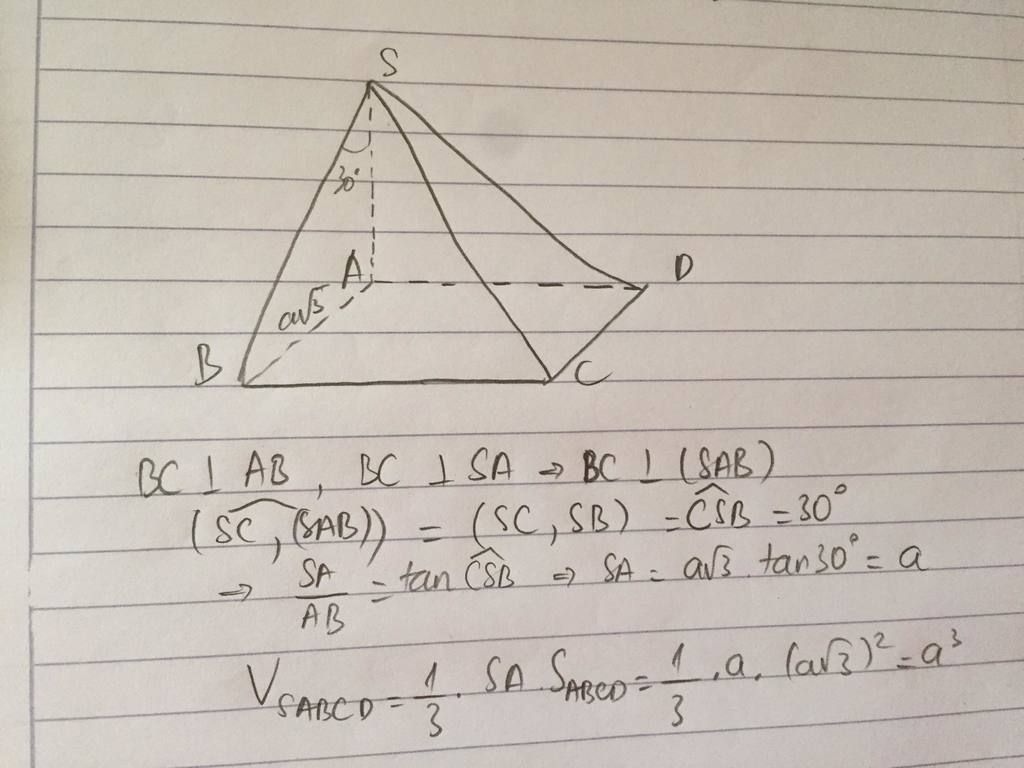 S
30°
A
D
a√3
B
C
BC ⊥ AB, BC ⊥ SA → BC ⊥ (SAB)
(SC, (SAB)) = (SC, SB) = CSB = 30°
→ SA/AB = tan CSB ⇒ SA = a√3 . tan30° = a
V_SABCD = 1/3 . SA . S_ABCD = 1/3 . a . (a√3)² = a³